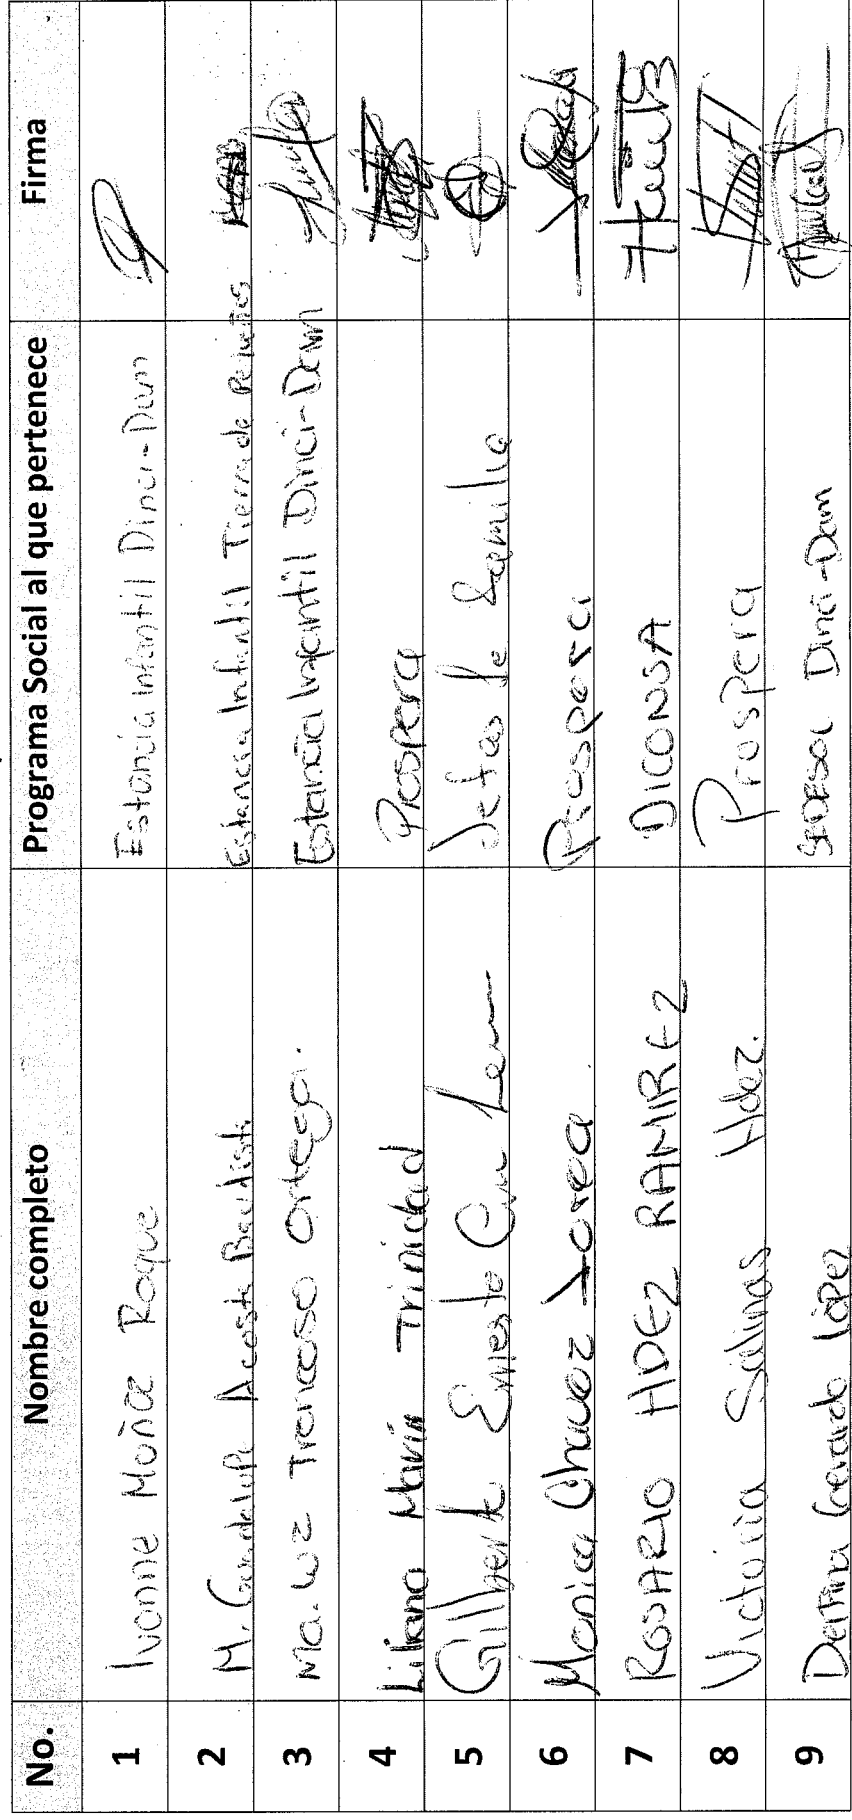 No. Nombre completo Programa Social al que pertenece Firma
1 Ivonne Moñca Roque Estancia infantil Dinci-Dam
2 M. Guadalupe Acosta Bautista Estancia Infantil Tierra de
3 Ma. Luz Troncoso Ortega. Estancia Infantil Dinci-Dam
4 Liliana Marín Trinidad Prospera
5 Ernesto Jefas de familia
6 Monica Chavez Prospera
7 ROSARIO HDEZ RAMIREZ DICONSA
8 Victoria Salinas Hdez. Prospera
9 Gerardo López SEDESOL Dinci-Dam